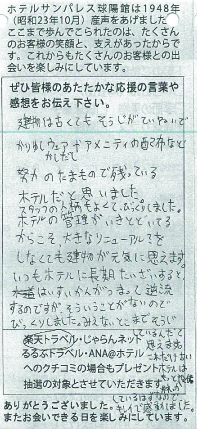 ホテルサンパレス球陽館は1948年
(昭和23年10月)産声をあげました
ここまで歩んでこられたのは、たくさん
のお客様の笑顔と、支えがあったからで
す。これからもたくさんのお客様との出会
いを楽しみにしています。
ぜひ皆様のあたたかな応援の言葉や
感想をお伝え下さい。
建物は古くても そうじがていねいで
かりゆしウェアやアメニティの配布など
かしだし
努力のたまもので残っている
ホテルだと思いました。
スタッフの人柄もよくてびっくりしました。
ホテルの管理がいきとどいてる
からこそ 大きなリニューアルを
しなくても建物が元気に思えます。
いつもホテルに長期たいざいすると、
水道はすいかんがつまって逆流
するのですが、そういうことがないので
びっくりしました。みえないとこまでそうじ
しているんだ
と思えます
楽天トラベル・じゃらんネット
るるぶトラベル・ANA@ホテル
へのクチコミの場合もプレゼント
抽選の対象とさせていただきます。
これだけ古い
ホテルは
しているはずなので
キレイで感動しました。
ありがとうございました。
またお会いできる日を楽しみにしています。